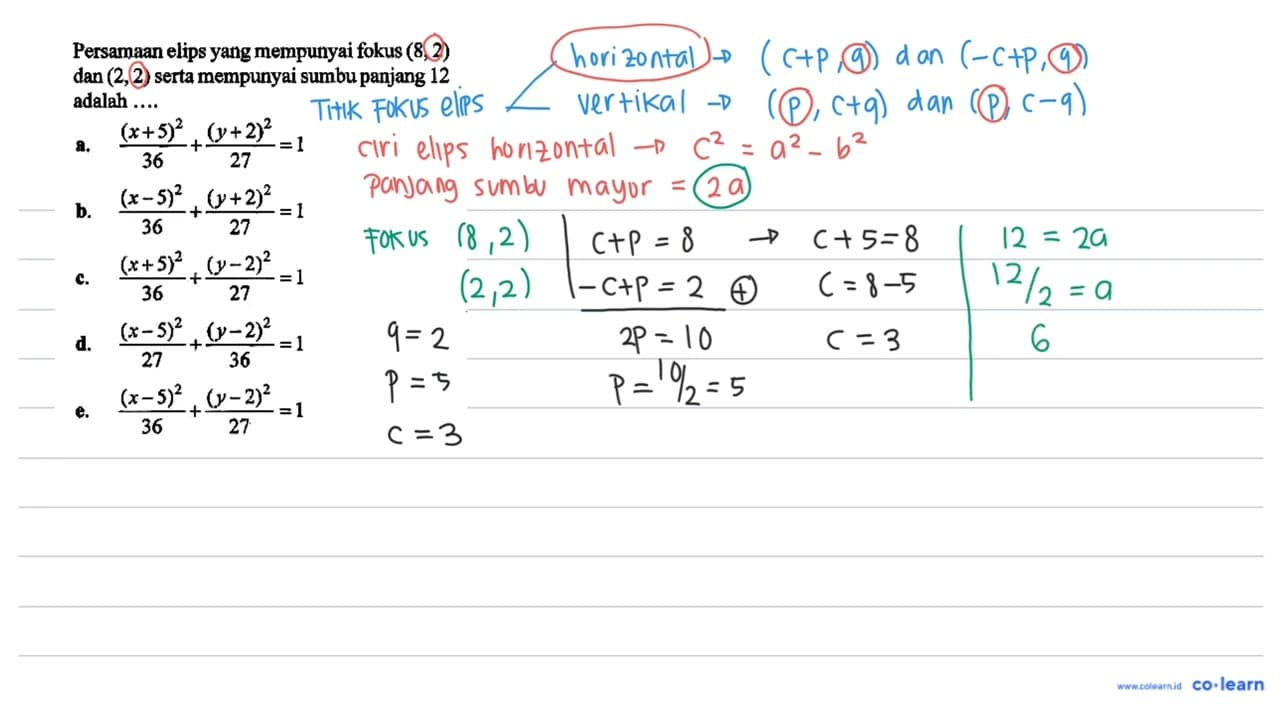 Persamaan elips yang mempunyai fokus (8, 2)
dan (2, 2) serta mempunyai sumbu panjang 12
adalah ....
a. (x+5)²/36 + (y+2)²/27 = 1
b. (x−5)²/36 + (y+2)²/27 = 1
c. (x+5)²/36 + (y−2)²/27 = 1
d. (x−5)²/27 + (y−2)²/36 = 1
e. (x−5)²/36 + (y−2)²/27 = 1
TITIK FOKUS elips
horizontal → (c+p, q) dan (-c+p, q)
vertikal → (p, c+q) dan (p, c-q)
ciri elips horizontal → c² = a² - b²
panjang sumbu mayor = 2a
FOKUS (8,2)
(2,2)
q = 2
p = 5
c = 3
c+p = 8
-c+p = 2 ⊕
2p = 10
p = 10/2 = 5
→ c + 5 = 8
c = 8-5
c = 3
12 = 2a
12/2 = a
6
www.colearn.id co·learn